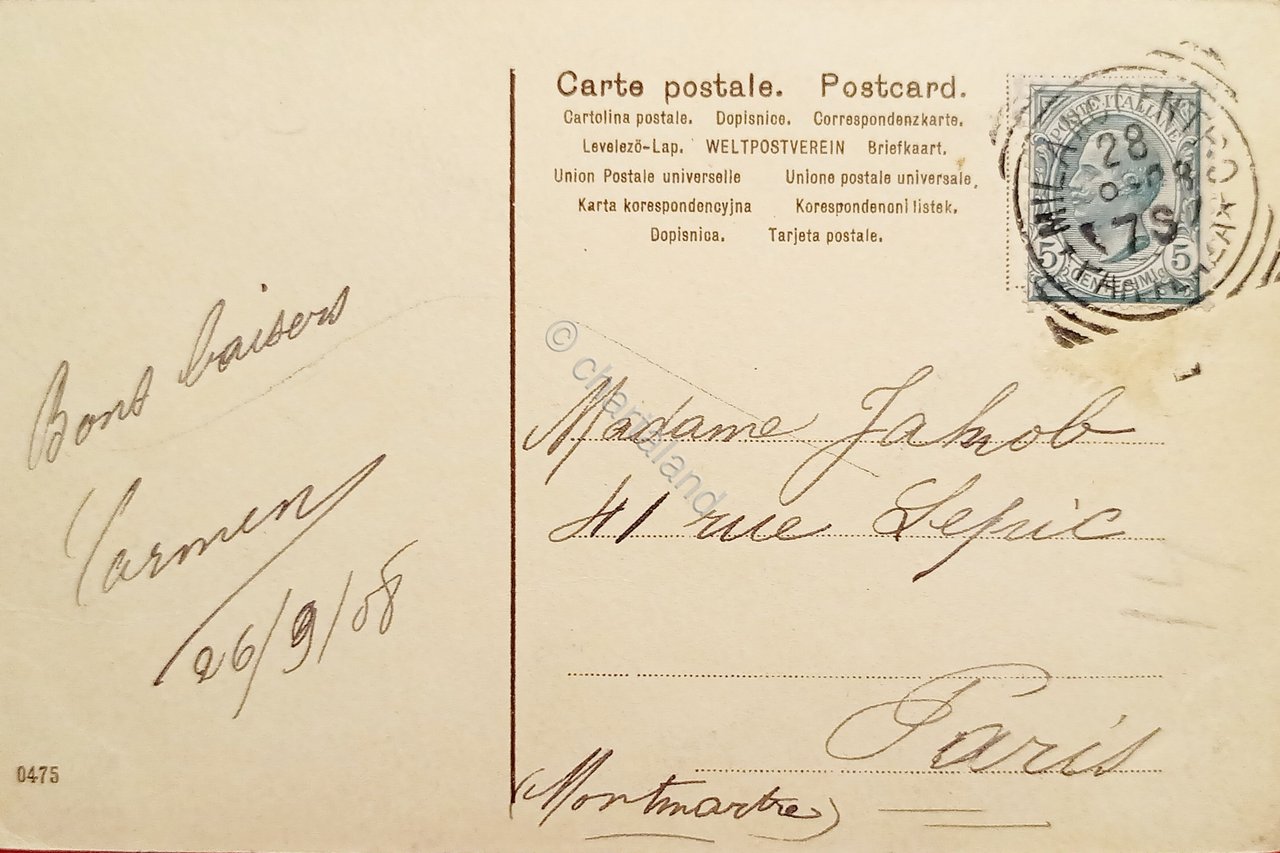 Carte postale. Postcard.
Cartolina postale. Dopisnice. Correspondenzkarte.
Levelező-Lap. WELTPOSTVEREIN Briefkaart.
Union Postale universelle Unione postale universale.
Karta korespondencyjna Korespondenoni listek.
Dopisnica. Tarjeta postale.
POSTE·ITALIANE
5 CENTESIMI 5
MILANO CENTRO
28
Bons baisers
Carmen
26/9/08
Madame Jakob
41 rue Lepic
Paris
(Montmartre)
0475
© chartaland